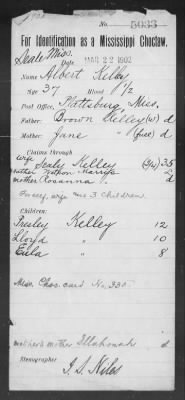 No. 5033
For Identification as a Mississippi Choctaw.
Seale Miss. MAR 22 1902
Name Albert Kelley
Age 37 Blood 1/2
Post Office, Plattsburg, Miss.
Father: Brown Kelley (w) d
Mother: Jane " (full) d
Claims through
wife Sealy Kelley 35
father d
mother Roxanna d
wife and 3 children.
Children:
Presley Kelley 12
Lloyd " 10
Eula " 8
Miss. Choc. card No. 330
mother's mother Illahonah d
Stenographer